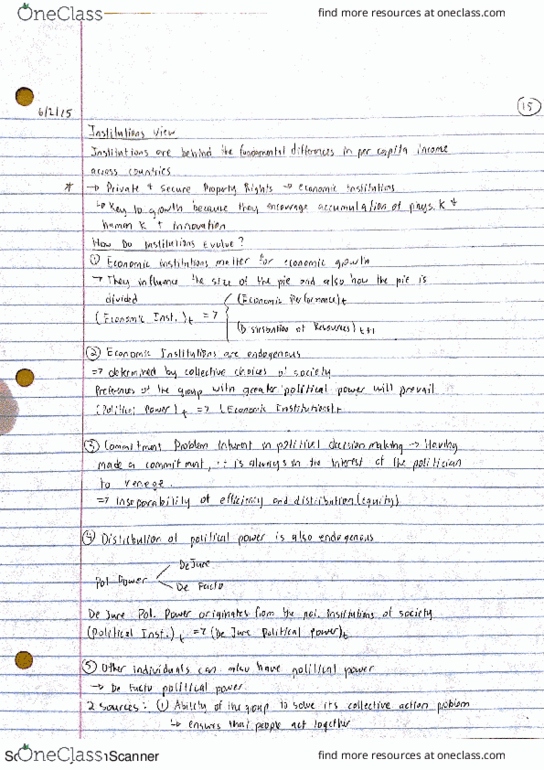 OneClass
find more resources at oneclass.com
15
6/2/15
Institutions view
Institutions are behind the fundamental differences in per capita income
across countries
* → Private & Secure Property Rights → economic institutions
↳ Key to growth because they encourage accumulation of phys. K &
human K + innovation
How Do Institutions Evolve?
① Economic institutions matter for economic growth
→ They influence the size of the pie and also how the pie is
divided
(Economic Performance)t
(Economic Inst.)t =>
(Distribution of Resources)t+1
② Economic Institutions are endogenous
=> determined by collective choices of society
Preferences of the group with greater political power will prevail
(Political Power)t => (Economic Institutions)t
③ Commitment Problem inherent in political decision making → Having
made a commitment, it is always in the interest of the politician
to renege.
=> Inseparability of efficiency and distribution (equity)
④ Distribution of political power is also endogenous
De Jure
Pol Power
De Facto
De Jure Pol. Power originates from the pol. institutions of society
(Political Inst.)t => (De Jure Political Power)t
⑤ Other individuals can also have political power
→ De facto political power
2 sources: ① Ability of the group to solve its collective action problem
↳ ensures that people act together
OneClass
Scanner
find more resources at oneclass.com